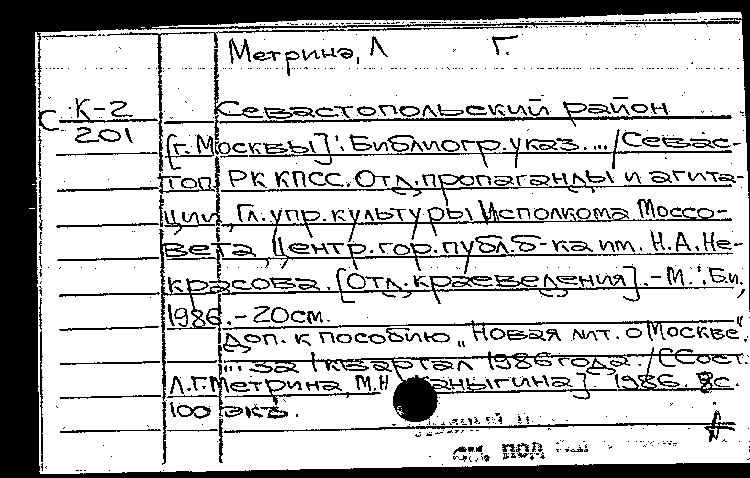 Метрина, Л Г.
С К-2
201
Севастопольский район
[г. Москвы]: Библиогр. указ. ... / Севас-
топ. РК КПСС. Отд. пропаганды и агита-
ции, Гл. упр. культуры Исполкома Моссо-
вета, Центр. гор. публ. б-ка им. Н.А. Не-
красова. [Отд. краеведения]. - М.: Б.и.,
1986. - 20см.
Доп. к пособию „Новая лит. о Москве"
... за 1 квартал 1986 года. / [Сост.
Л.Г. Метрина, М.Н. 1986. 8с.
100 экз.
см. под